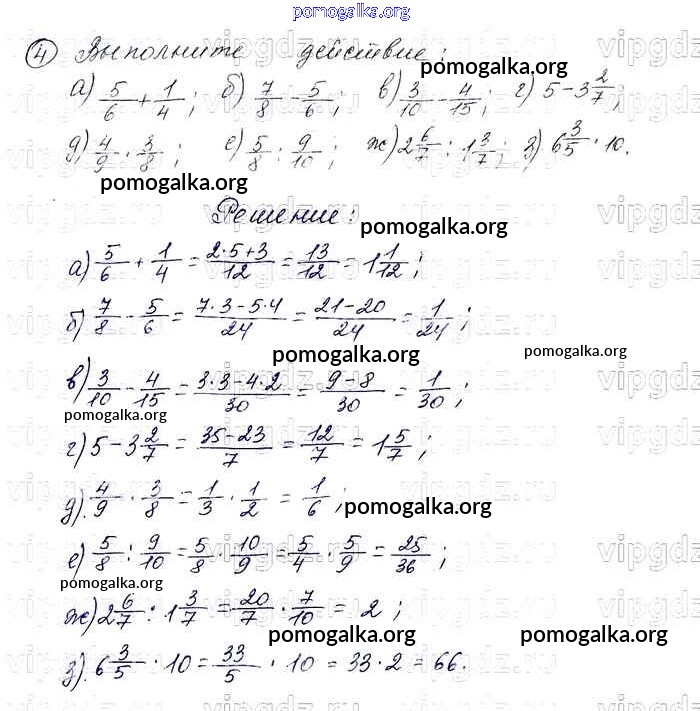 pomogalka.org
4 Выполните действие:
pomogalka.org
а) 5/6 + 1/4; б) 7/8 - 5/6; в) 3/10 - 4/15; г) 5 - 3 2/7;
д) 4/9 · 3/8; е) 5/8 : 9/10; ж) 2 6/7 : 1 3/7; з) 6 3/5 · 10.
pomogalka.org
Решение:
pomogalka.org
а) 5/6 + 1/4 = (2·5+3)/12 = 13/12 = 1 1/12;
б) 7/8 - 5/6 = (7·3-5·4)/24 = (21-20)/24 = 1/24;
pomogalka.org
pomogalka.org
в) 3/10 - 4/15 = (3·3-4·2)/30 = (9-8)/30 = 1/30;
pomogalka.org
г) 5 - 3 2/7 = (35-23)/7 = 12/7 = 1 5/7;
д) 4/9 · 3/8 = 1/3 · 1/2 = 1/6;
pomogalka.org
е) 5/8 : 9/10 = 5/8 · 10/9 = 5/4 · 5/9 = 25/36;
pomogalka.org
ж) 2 6/7 : 1 3/7 = 20/7 · 7/10 = 2;
pomogalka.org
pomogalka.org
з) 6 3/5 · 10 = 33/5 · 10 = 33·2 = 66.